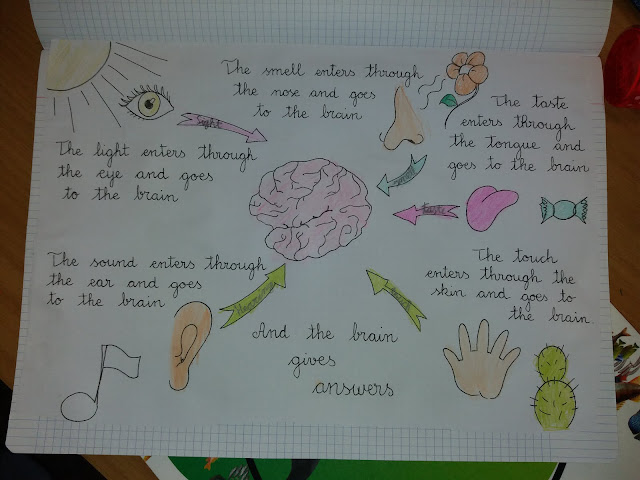 The smell enters through
the nose and goes
to the brain
The taste
enters through
the tongue and
goes to the brain
sight
The light enters through
the eye and goes
to the brain
taste
The sound enters through
the ear and goes
to the brain
The touch
enters through the
skin and goes to
the brain.
And the brain
gives
answers